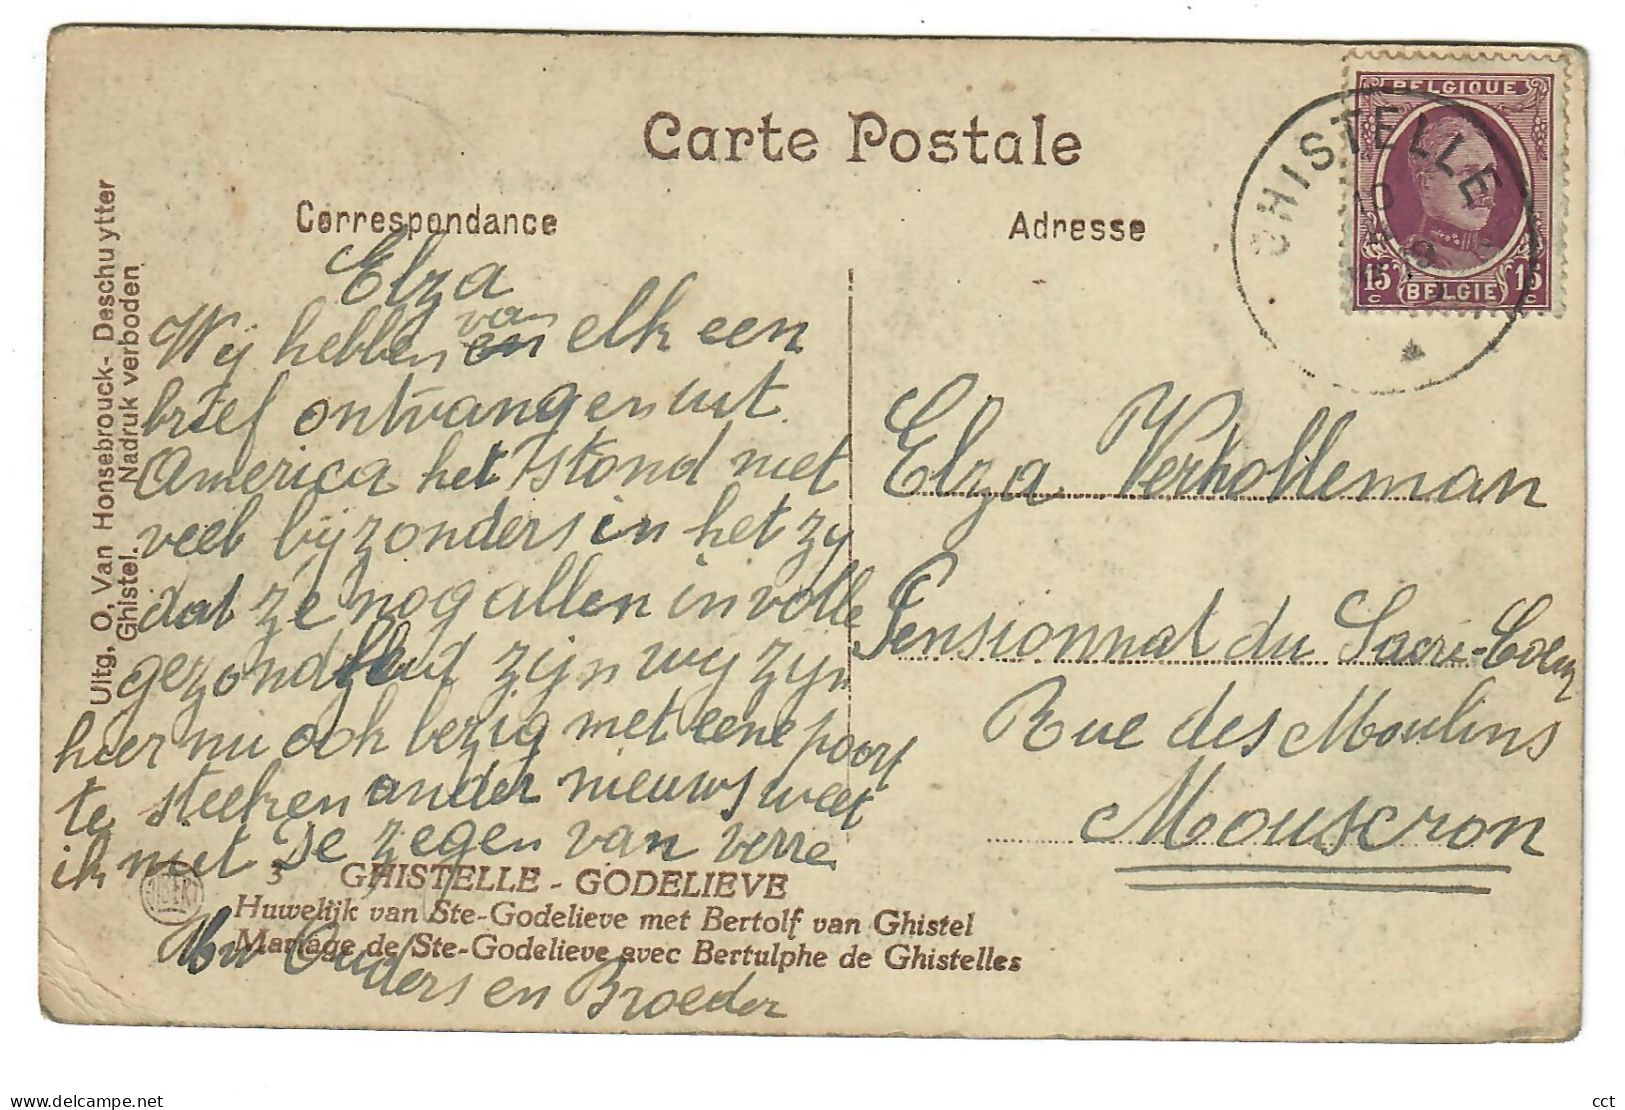 Carte Postale
Correspondance
Adresse
BELGIQUE
15 15
BELGIE
GHISTELLE
10
Uitg, O, Van Honsebrouck- Deschuytter
Ghistel. Nadruk verboden
Elza
Wij hebben van elk een
brief ontvangen uit
America het stond niet
veel bijzonders in het zy
dat ze nog allen in volle
gezondheid zijn wy zyn
hier nu ook bezig met eene poort
te steeken ander nieuws weet
ik niet De zegen van verre
Uw Ouders en Broeder
Elza Verholleman
Pensionnat du Sacré-Coeur
Rue des Moulins
Mouscron
3 GHISTELLE - GODELIEVE
Huwelijk van Ste-Godelieve met Bertolf van Ghistel
Mariage de Ste-Godelieve avec Bertulphe de Ghistelles
cartespostalesdecollection.net / CCT